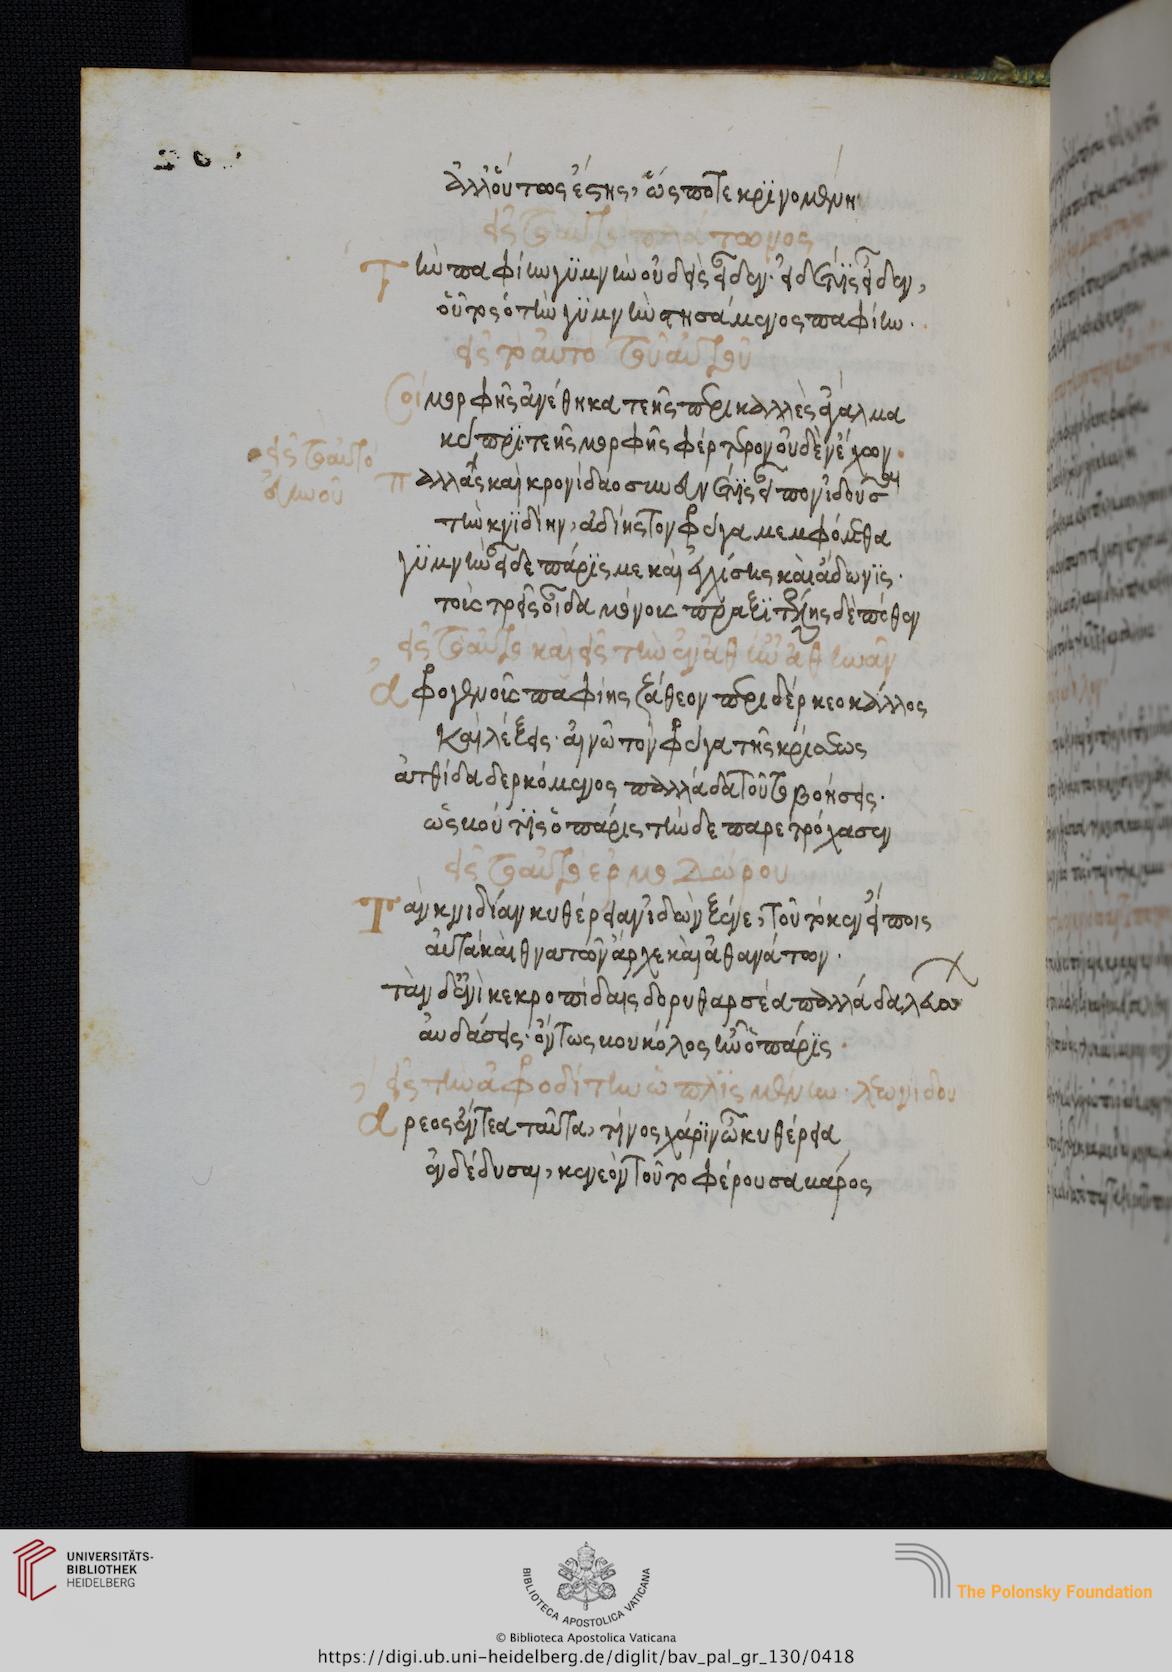 ἀλλ' οὕτως ἔστης, ὥς ποτε κρινομένη
εἰς τὸ αὐτὸ πλάτωνος
Τὴν παφίην γυμνὴν οὐδεὶς ἴδεν· εἰ δέ τις εἶδεν,
οὗτος ὁ τὴν γυμνὴν στησάμενος παφίην.
εἰς τὸ αὐτὸ τοῦ αὐτοῦ
Σοὶ μορφῆς ἀνέθηκα τεῆς περικαλλὲς ἄγαλμα
κύπρι τεῆς μορφῆς φέρτερον οὐδὲν ἔχων.
εἰς τὸ αὐτὸ
Παλλὰς καὶ κρονίδαο συνευνέτις εἶπον ἰδοῦσαι
τὴν κνιδίην, ἀδίκως τὸν φρύγα μεμφόμεθα
γυμνὴν εἶδε πάρις με καὶ ἀγχίσης καὶ ἄδωνις.
τοὺς τρεῖς οἶδα μόνους πραξιτέλης δὲ πόθεν
εἰς τὸ αὐτὸ καὶ εἰς τὴν ἐν ἀθήναις ἀθηνᾶν
Ἀφρογενοῦς παφίης ζάθεον περιδέρκεο κάλλος
καὶ λέξεις· αἰνῶ τὸν φρύγα τῆς κρίσεως
ἀτθίδα δερκόμενος παλλάδα τοῦτο βοήσεις.
ὡς βούτης ὁ πάρις τήνδε παρετρόχασεν
εἰς τὸ αὐτὸ ἑρμοδώρου
Τὰν κνιδίαν κυθέρειαν ἰδὼν ξένε, τοῦτό κεν εἴποις
αὐτὰ καὶ θνατῶν ἄρχε καὶ ἀθανάτων.
τὰν δ' ἐνὶ κεκροπίδαις δορυθαρσέα παλλάδα λεύσσων
αὐδάσεις· ὄντως βουκόλος ἦν ὁ πάρις.
εἰς τὴν ἀφροδίτην ὡπλισμένην. λεωνίδου
Ἄρεος ἔντεα ταῦτα, τίνος χάριν ὦ κυθέρεια
ἐνδέδυσαι, κενεὸν τοῦτο φέρουσα βάρος
UNIVERSITÄTS-
BIBLIOTHEK
HEIDELBERG
BIBLIOTECA APOSTOLICA VATICANA
© Biblioteca Apostolica Vaticana
The Polonsky Foundation
https://digi.ub.uni-heidelberg.de/diglit/bav_pal_gr_130/0418